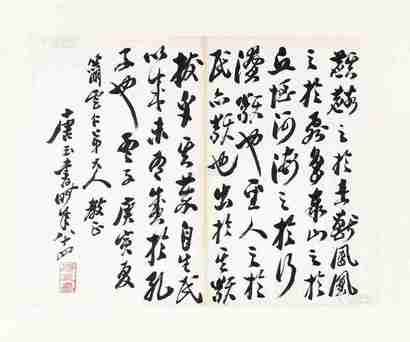 麒麟之於走獸鳳凰
之於飛鳥泰山之於
丘垤河海之於行
潦類也聖人之於
民亦類也出於其類
拔乎其萃自生民
以來未有盛於孔
子也 孟子 庚寅夏
雲仁弟大人 教正
唐玉書時年八十四